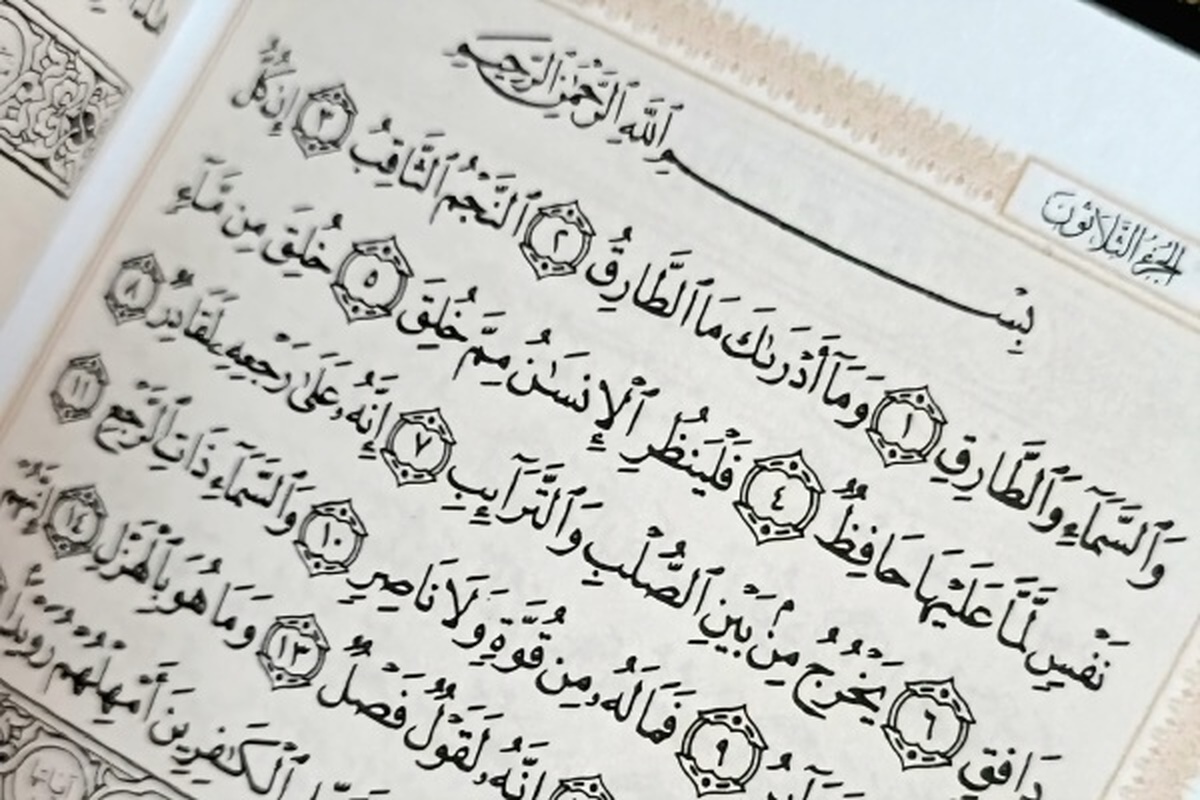 الجزء الثلاثون
بِسْمِ ٱللَّهِ ٱلرَّحْمَٰنِ ٱلرَّحِيمِ
وَٱلسَّمَآءِ وَٱلطَّارِقِ ١ وَمَآ أَدْرَىٰكَ مَا ٱلطَّارِقُ ٢ ٱلنَّجْمُ ٱلثَّاقِبُ ٣ إِن كُلُّ
نَفْسٍ لَّمَّا عَلَيْهَا حَافِظٌ ٤ فَلْيَنظُرِ ٱلْإِنسَٰنُ مِمَّ خُلِقَ ٥ خُلِقَ مِن مَّآءٍ
دَافِقٍ ٦ يَخْرُجُ مِنۢ بَيْنِ ٱلصُّلْبِ وَٱلتَّرَآئِبِ ٧ إِنَّهُۥ عَلَىٰ رَجْعِهِۦ لَقَادِرٌ ٨
فَمَا لَهُۥ مِن قُوَّةٍ وَلَا نَاصِرٍ ١٠ وَٱلسَّمَآءِ ذَاتِ ٱلرَّجْعِ ١١
إِنَّهُۥ لَقَوْلٌ فَصْلٌ ١٣ وَمَا هُوَ بِٱلْهَزْلِ ١٤ إِنَّهُمْ
ٱلْكَٰفِرِينَ أَمْهِلْهُمْ رُوَيْدًۢا